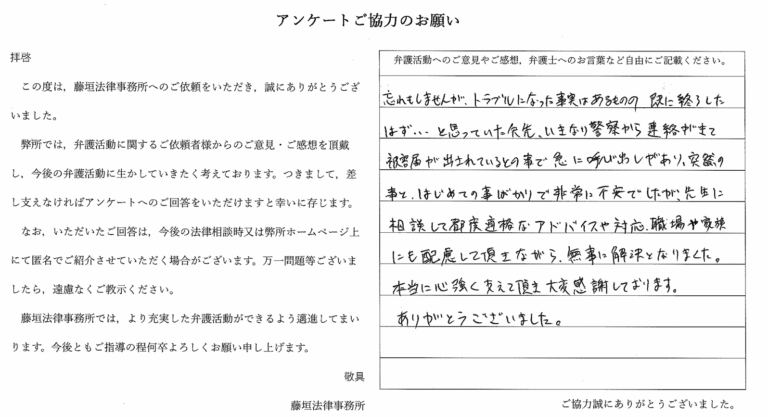 アンケートご協力のお願い
拝啓
この度は，藤垣法律事務所へのご依頼をいただき，誠にありがとうござ
いました。
弊所では，弁護活動に関するご依頼者様からのご意見・ご感想を頂戴
し，今後の弁護活動に生かしていきたく考えております。つきまして，差
し支えなければアンケートへのご回答をいただけますと幸いに存じます。
なお，いただいたご回答は，今後の法律相談時又は弊所ホームページ上
にて匿名でご紹介させていただく場合がございます。万一問題等ございま
したら，遠慮なくご教示ください。
藤垣法律事務所では，より充実した弁護活動ができるよう邁進してまい
ります。今後ともご指導の程何卒よろしくお願い申し上げます。
敬具
藤垣法律事務所
弁護活動へのご意見やご感想，弁護士へのお言葉など自由にご記載ください。
忘れもしませんが、トラブルになった事実はあるものの 既に終了した
はず…と思っていた矢先、いきなり警察から連絡がきて
被害届が出されているとの事で急に呼び出しがあり、突然の
事と、はじめての事ばかりで非常に不安でしたが、先生に
相談して都度適格なアドバイスや対応、職場や家族
にも配慮して頂きながら、無事に解決となりました。
本当に心強く支えて頂き大変感謝しております。
ありがとうございました。
ご協力誠にありがとうございました。